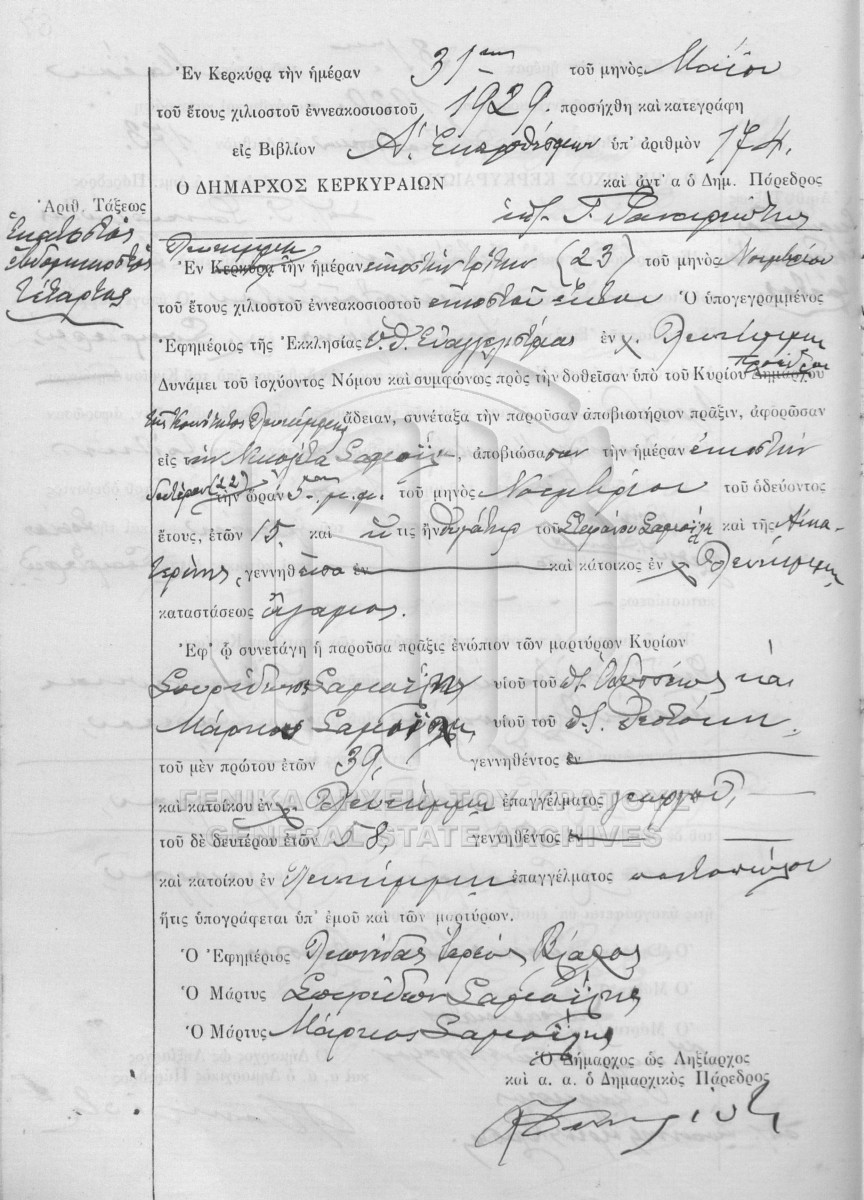 Ἐν Κερκύρᾳ τὴν ἡμέραν 31ην τοῦ μηνὸς Μαΐου
τοῦ ἔτους χιλιοστοῦ ἐννεακοσιοστοῦ 1929. προσήχθη καὶ κατεγράφη
εἰς Βιβλίον Α΄. Ἐκπροθέσμων ὑπ' ἀριθμὸν 174.
Ο ΔΗΜΑΡΧΟΣ ΚΕΡΚΥΡΑΙΩΝ καὶ ἀντ' α ὁ Δημ. Πάρεδρος
Ἀριθ. Τάξεως
Ἑκατοστὸς
ἑβδομηκοστὸς
τέταρτος
Λευκίμμῃ
Ἐν Κερκύρᾳ τὴν ἡμέραν εἰκοστὴν τρίτην (23) τοῦ μηνὸς Νοεμβρίου
τοῦ ἔτους χιλιοστοῦ ἐννεακοσιοστοῦ εἰκοστοῦ ἕκτου Ὁ ὑπογεγραμμένος
Ἐφημέριος τῆς Ἐκκλησίας Ὑ. Θ. Εὐαγγελιστρίας ἐν χ. Λευκίμμῃ
Δυνάμει τοῦ ἰσχύοντος Νόμου καὶ συμφώνως πρὸς τὴν δοθεῖσαν ὑπὸ τοῦ Κυρίου Δημάρχου Προέδρου
τῆς Κοινότητος Λευκίμμης ἄδειαν, συνέταξα τὴν παροῦσαν ἀποβιωτήριον πρᾶξιν, ἀφορῶσαν
εἰς τὴν Νικολέτα Σαμοΐλη, ἀποβιώσασαν τὴν ἡμέραν εἰκοστὴν
δευτέραν (22) τὴν ὥραν 5ην μ.μ. τοῦ μηνὸς Νοεμβρίου τοῦ ὁδεύοντος
ἔτους, ἐτῶν 15 καὶ ἥτις ἦν θυγάτηρ τοῦ Στεφάνου Σαμοΐλη καὶ τῆς Αἰκα-
τερίνης, γεννηθεῖσα ἐν καὶ κάτοικος ἐν χ. Λευκίμμῃ
καταστάσεως ἄγαμος.
Ἐφ' ᾧ συνετάγη ἡ παροῦσα πρᾶξις ἐνώπιον τῶν μαρτύρων Κυρίων
Σπυρίδωνος Σαμοΐλη υἱοῦ τοῦ ποτ. Ὀδυσσέως καὶ
Μάρκου Σαμοΐλη υἱοῦ τοῦ ποτ. Θεοτόκη
τοῦ μὲν πρώτου ἐτῶν 39, γεννηθέντος ἐν
καὶ κατοίκου ἐν χ. Λευκίμμῃ ἐπαγγέλματος γεωργοῦ,
τοῦ δὲ δευτέρου ἐτῶν 58, γεννηθέντος ἐν
καὶ κατοίκου ἐν Λευκίμμῃ ἐπαγγέλματος παντοπώλου
ἥτις ὑπογράφεται ὑπ' ἐμοῦ καὶ τῶν μαρτύρων.
Ὁ Ἐφημέριος Λεωνίδας Ἱερεὺς Βλάχος
Ὁ Μάρτυς Σπυρίδων Σαμοΐλης
Ὁ Μάρτυς Μάρκος Σαμοΐλης
Ὁ Δήμαρχος ὡς Ληξίαρχος
καὶ α. α. ὁ Δημαρχικὸς Πάρεδρος
ΓΕΝΙΚΑ ΑΡΧΕΙΑ ΤΟΥ ΚΡΑΤΟΥΣ
GENERAL STATE ARCHIVES